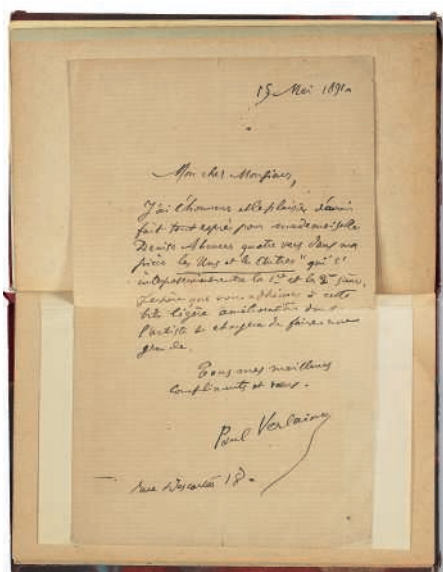 15 Mai 1891.
Mon cher Monsieur,
J'ai l'honneur et le plaisir d'avoir
fait tout exprès pour mademoiselle
Denise Ahmers quatre vers dans ma
pièce les Uns et les Autres" qui s'
la 1ère et la 2e scène.
J'espère que vous adhérez à cette
très légère amélioration dont
l'artiste se chargera de faire une
grande.
Tous mes meilleurs
compliments et vœux.
Paul Verlaine
rue Descartes 18.